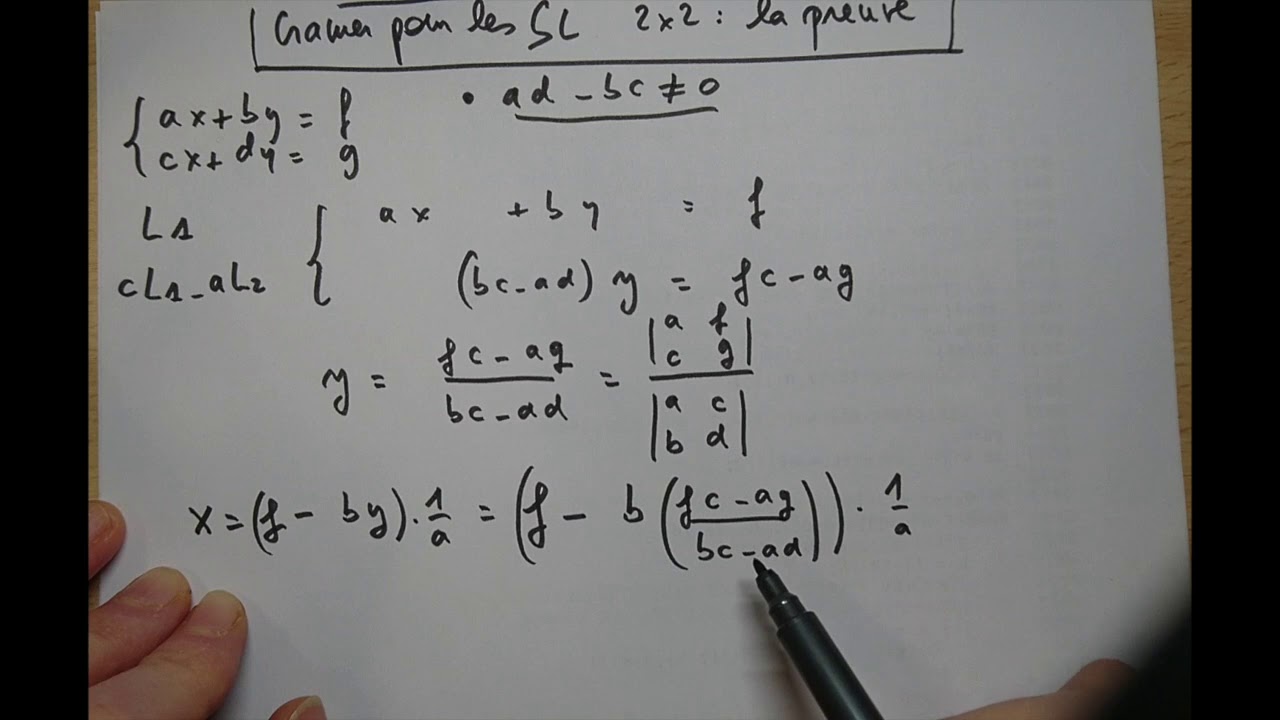 Cramer pour les SL 2x2 : la preuve
• ad - bc ≠ 0
{ ax + by = f
cx + dy = g
L1 { ax + by = f
cL1 - aL2 (bc - ad) y = fc - ag
y = (fc - ag)/(bc - ad) = |a f; c g| / |a c; b d|
x = (f - by) · 1/a = (f - b((fc - ag)/(bc - ad))) · 1/a